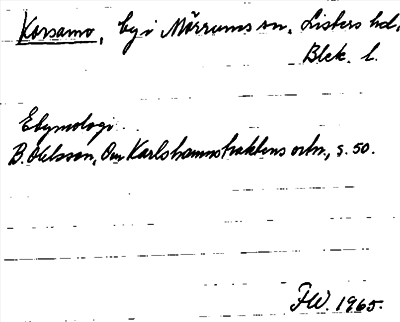 Korsamo, by i Mörrums sn, Listers hd,
Blek. l.
Etymologi
B. Olsson, Om Karlshamnstraktens ortn., s. 50.
FW 1965.